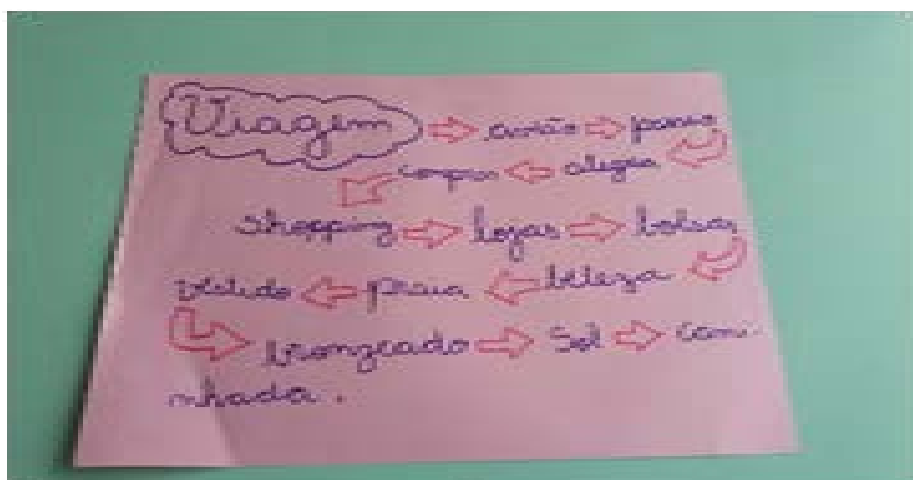 Viagem avião passeio
compras alegria
shopping lojas bolsas
vestido praia beleza
bronzeado Sol cami-
nhada.